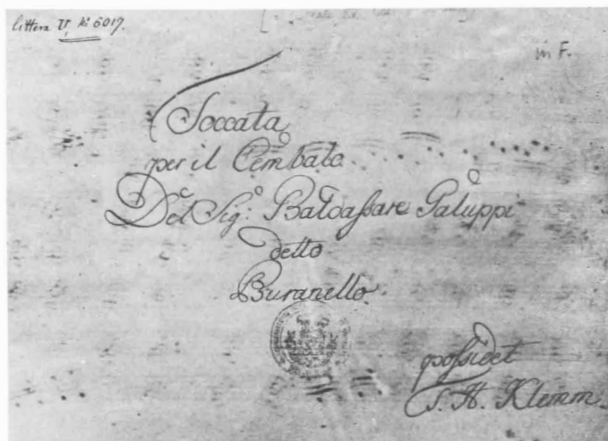 littera V. No 6017.
in F.
Toccata
per il Cembalo
Del Sig.º Baldassare Galuppi
detto
Buranello.
possidet
J. H. Klemm.